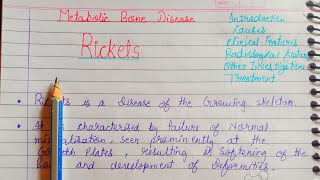 Metabolic Bone Disease
Rickets
Introduction
Causes
Clinical Features
Radiological Features
Other Investigations
Treatment
• Rickets is a Disease of the Growing skeletan.
• It is characterised by failure of Normal
mineralisation, seen prominently at the
Growth Plates, resulting in softening of the
Bone and development of Deformities.